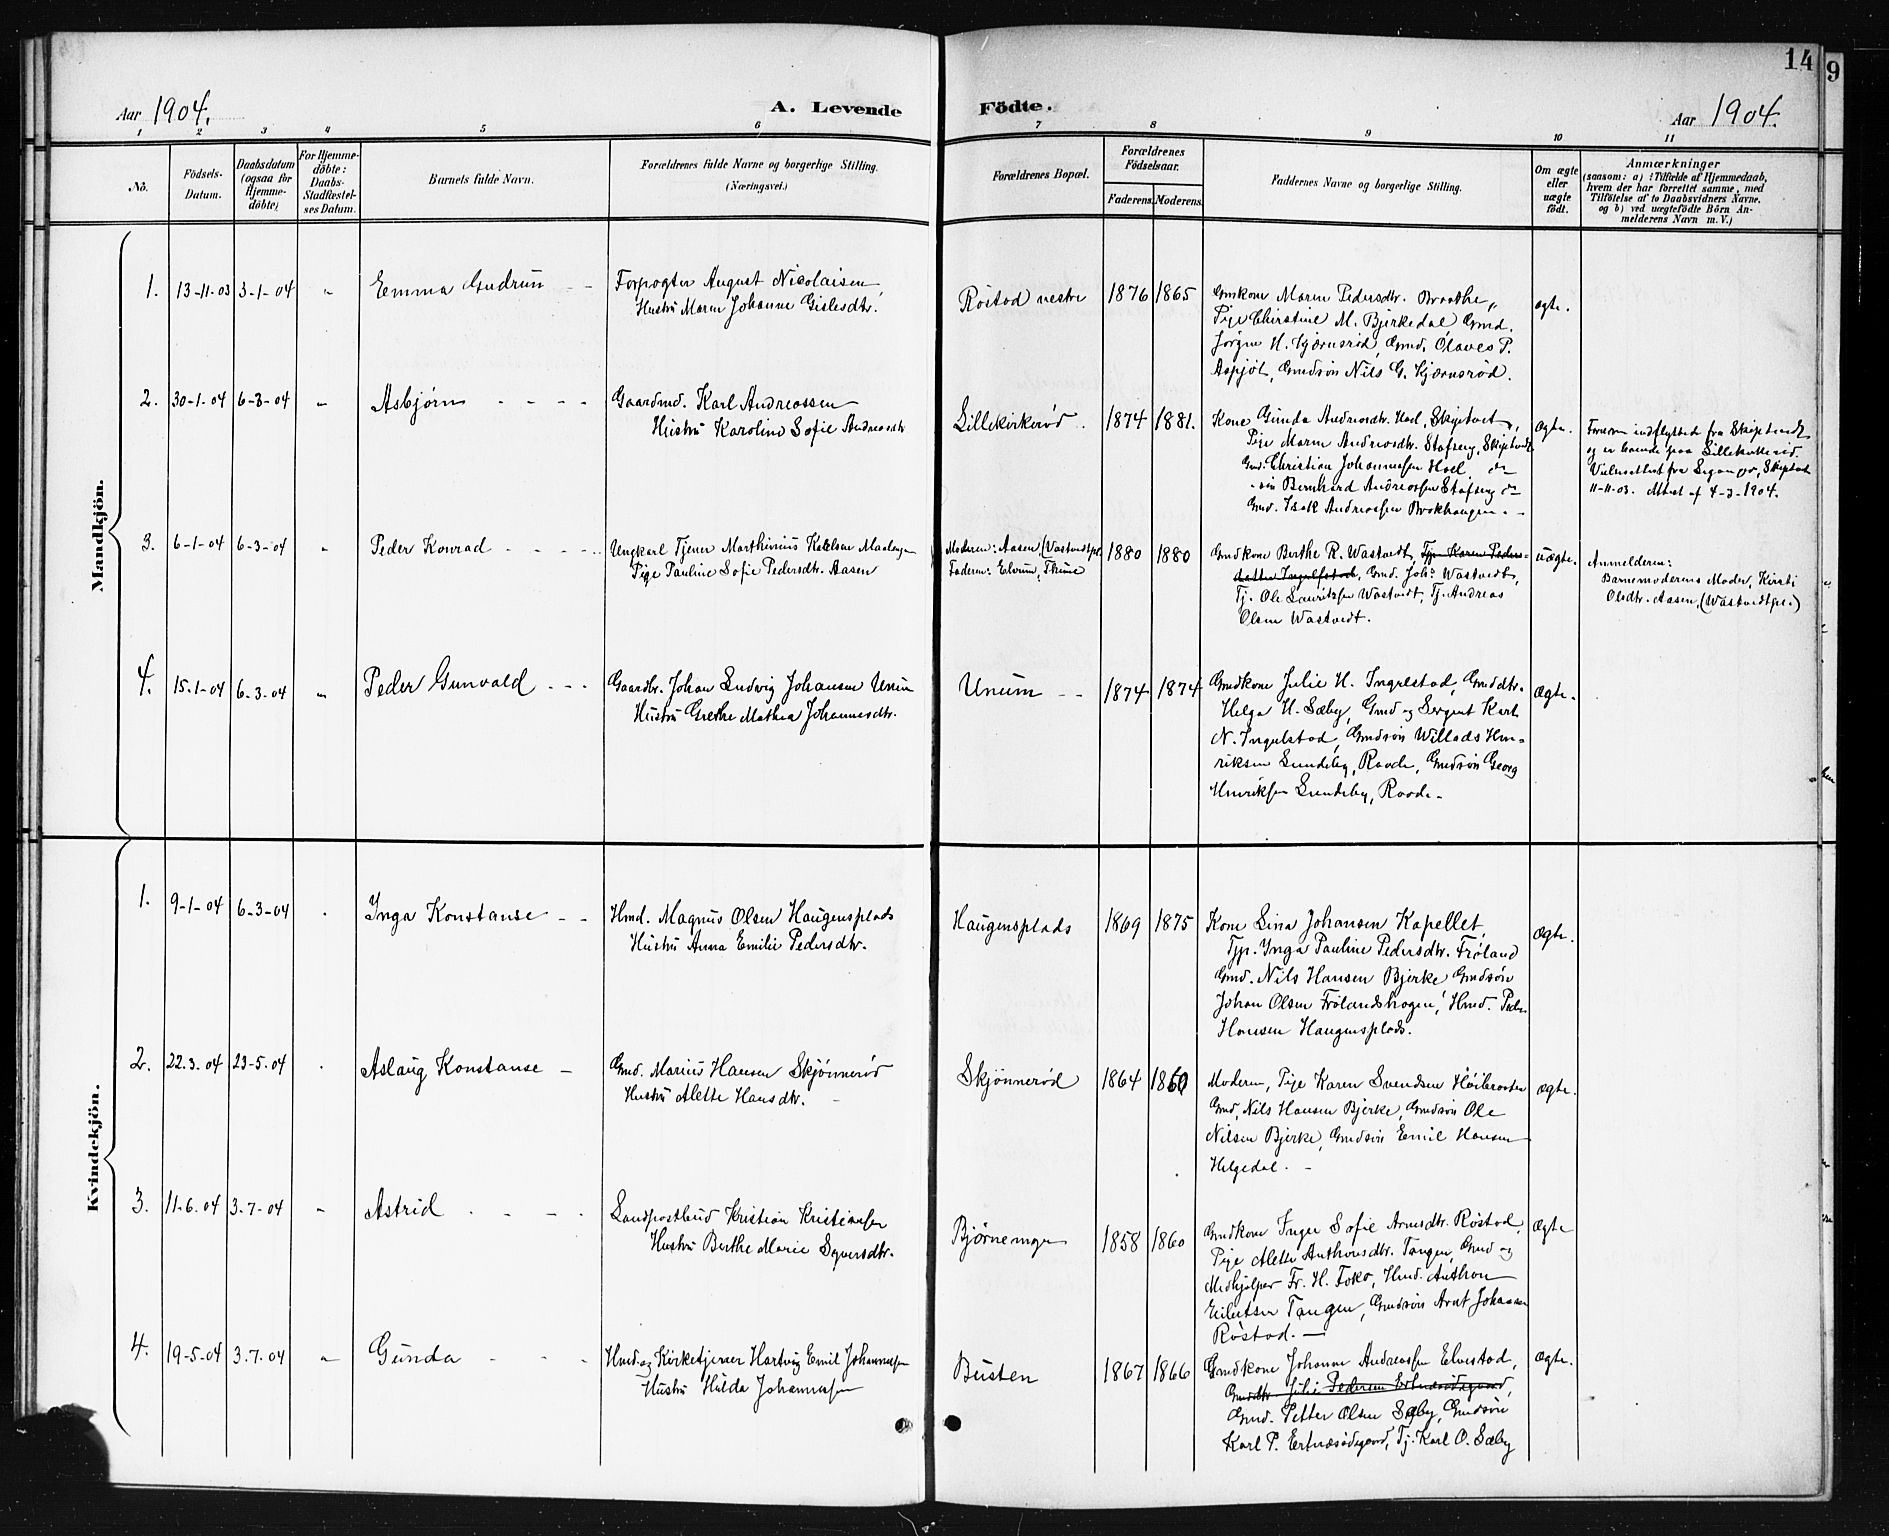 14
9
Aar 1904.
A. Levende
Födte.
Aar 1904.
1 2 3 4 5 6 7 8 9 10 11
No.
Födsels-
Datum.
Daabsdatum
(ogsaa for
Hjemme-
döbte)
For Hjemme-
döbte:
Daabs-
Stadfæstel-
ses Datum.
Barnets fulde Navn.
Forældrenes fulde Navne og borgerlige Stilling.
(Næringsvei.)
Forældrenes Bopæl.
Forældrenes
Födselsaar.
Faderens.
Moderens.
Faddernes Navne og borgerlige Stilling.
Om ægte
eller
uægte
födt.
Anmærkninger
(saasom: a) i Tilfælde af Hjemmedaab,
hvem der har forrettet samme, med
Tilföielse af to Daabsvidners Navne.
og b) ved uægtefödte Börn An-
melderens Navn m. V.)
Mandkjön.
1. 13-11-03 3-1-04 " Emma Gudrun - -
Forpagter August Nicolaisen,
Hustru Maren Johanne Gislesdtr.
Röstad vestre 1876 1865
Gmkone Maren Pedersdtr. Braathe,
Pige Christine M. Bjerkedal Gmd.
Jörgen H. Kjærnsröd, Gmd. Olaves P.
Aspjöt, Gmdsön Nils G. Kjærnsröd.
ægte.
2. 30-1-04 6-3-04 " Asbjørn - - - -
Gaardmd. Karl Andreassen
Hustru Karoline Sofie Andreasdtr
Lillekirkeröd. 1874 1881.
Kone Gunda Andreasdtr. Hoel, Skiptvet,
Pige Maren Andreasdtr. Stafseng, Skiptvedt
Gmd. Christian Johannessen Hoel, do
sön Bernhard Andreassen Stafseng do
Gmd. Isak Andreassen Brokhaugen - -
ægte.
indflyttet fra Skiptvedt
og er boende paa
Skiptvet
11-11-03. Attest af 4-3-1904.
3. 6-1-04 6-3-04 " Peder Konrad - - - -
Ungkarl Tjener Marthinius
Pige Pauline Sofie Pedersdtr. Aasen
Moderen: Aasen, (Vastvedtpl.
Faderen: Elvrum, Thune
1880 1880
Gmdkone Berthe R. Wastvedt, Tjp. Karen Peders-
datter Ingelfstad, Gmd. Johs Wastvedt,
Tj. Ole Lauritzsen Wastvedt, Tj. Andreas
Olsen Wastvedt.
uægte.
Anmelderen:
Barnemoderens Moder, Kirsti
Olsdtr. Aasen, (Wastvedtpl.)
4. 15-1-04 6-3-04 " Peder Gunvald - - -
Gaardbr. Johan Ludvig Johansen Unum
Hustru Grethe Mathea Johannesdtr.
Unum - - 1874 1874
Gmdkone Julie H. Ingelstad, Gmddtr.
Helga H. Sæby, Gmd og Sergent Karl
N. Ingelstad, Gmdsön Willads Hen-
riksen Sundeby, Raade, Gmdsön Georg
Henriksen Sundeby, Raade -
ægte.
Kvindekjön.
1. 9-1-04 6-3-04 Inga Konstanse - -
Hmd. Magnus Olsen Haugensplads
Hustru Anna Emilie Pedersdtr.
Haugensplads 1869 1875
Kone Lina Johansen Kapellet,
Tjp. Inga Pauline Pedersdtr. Fröland
Gmd. Nils Hansen Bjerke Gmdsön
Johan Olsen Frölandshagen, Hmd. Peder
Hansen Haugensplads.
ægte.
2. 22.3.04 23-5-04 Aslaug Konstanse -
Gmd. Marius Hansen Skjönneröd
Hustru Alette Hansdtr.
Skjönneröd 1864 1860
Moderen, Pige Karen Svendsen Höibraaten
Gmd, Nils Hansen Bjerke, Gmdsön Ole
Nilsen Bjerke, Gmdsön Emil Hansen
Helgedal. -
ægte.
3. 11-6.04 3.7-04 " Astrid - - - -
Landpostbud Kristian Kristiansen
Hustru Berthe Marie Syversdtr.
Bjørnemyr 1858 1860
Gmdkone Inger Sofie Arnesdtr. Röstad,
Pige Alette Anthonsdtr. Tangen, Gmd og
Medhjælper Fr. H. Foko, Hmd. Anthon
Eilertsen Tangen, Gmdsön Arnt Johansen
Röstad. -
ægte
4. 19-5-04 3.7.04 " Gunda - - -
Hmd. og Kirketjener Hartvig Emil Johannessen
Hustru Hilda Johannessen
Busten 1867 1866
Gmdkone Johanne Andreassen Elvestad,
Gmddtr. Julie Pedersen Ertnæsödegaard,
Gmd. Petter Olsen Sæby, Gmdsön
Karl P. Ertnæsödegaard, Tj. Karl O. Sæby
ægte.